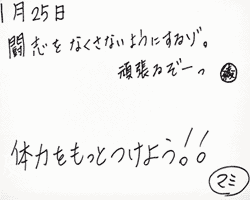 1月25日
闘志をなくさないようにするゾ。
頑張るぞーっ
体力をもっとつけよう!!
マミ